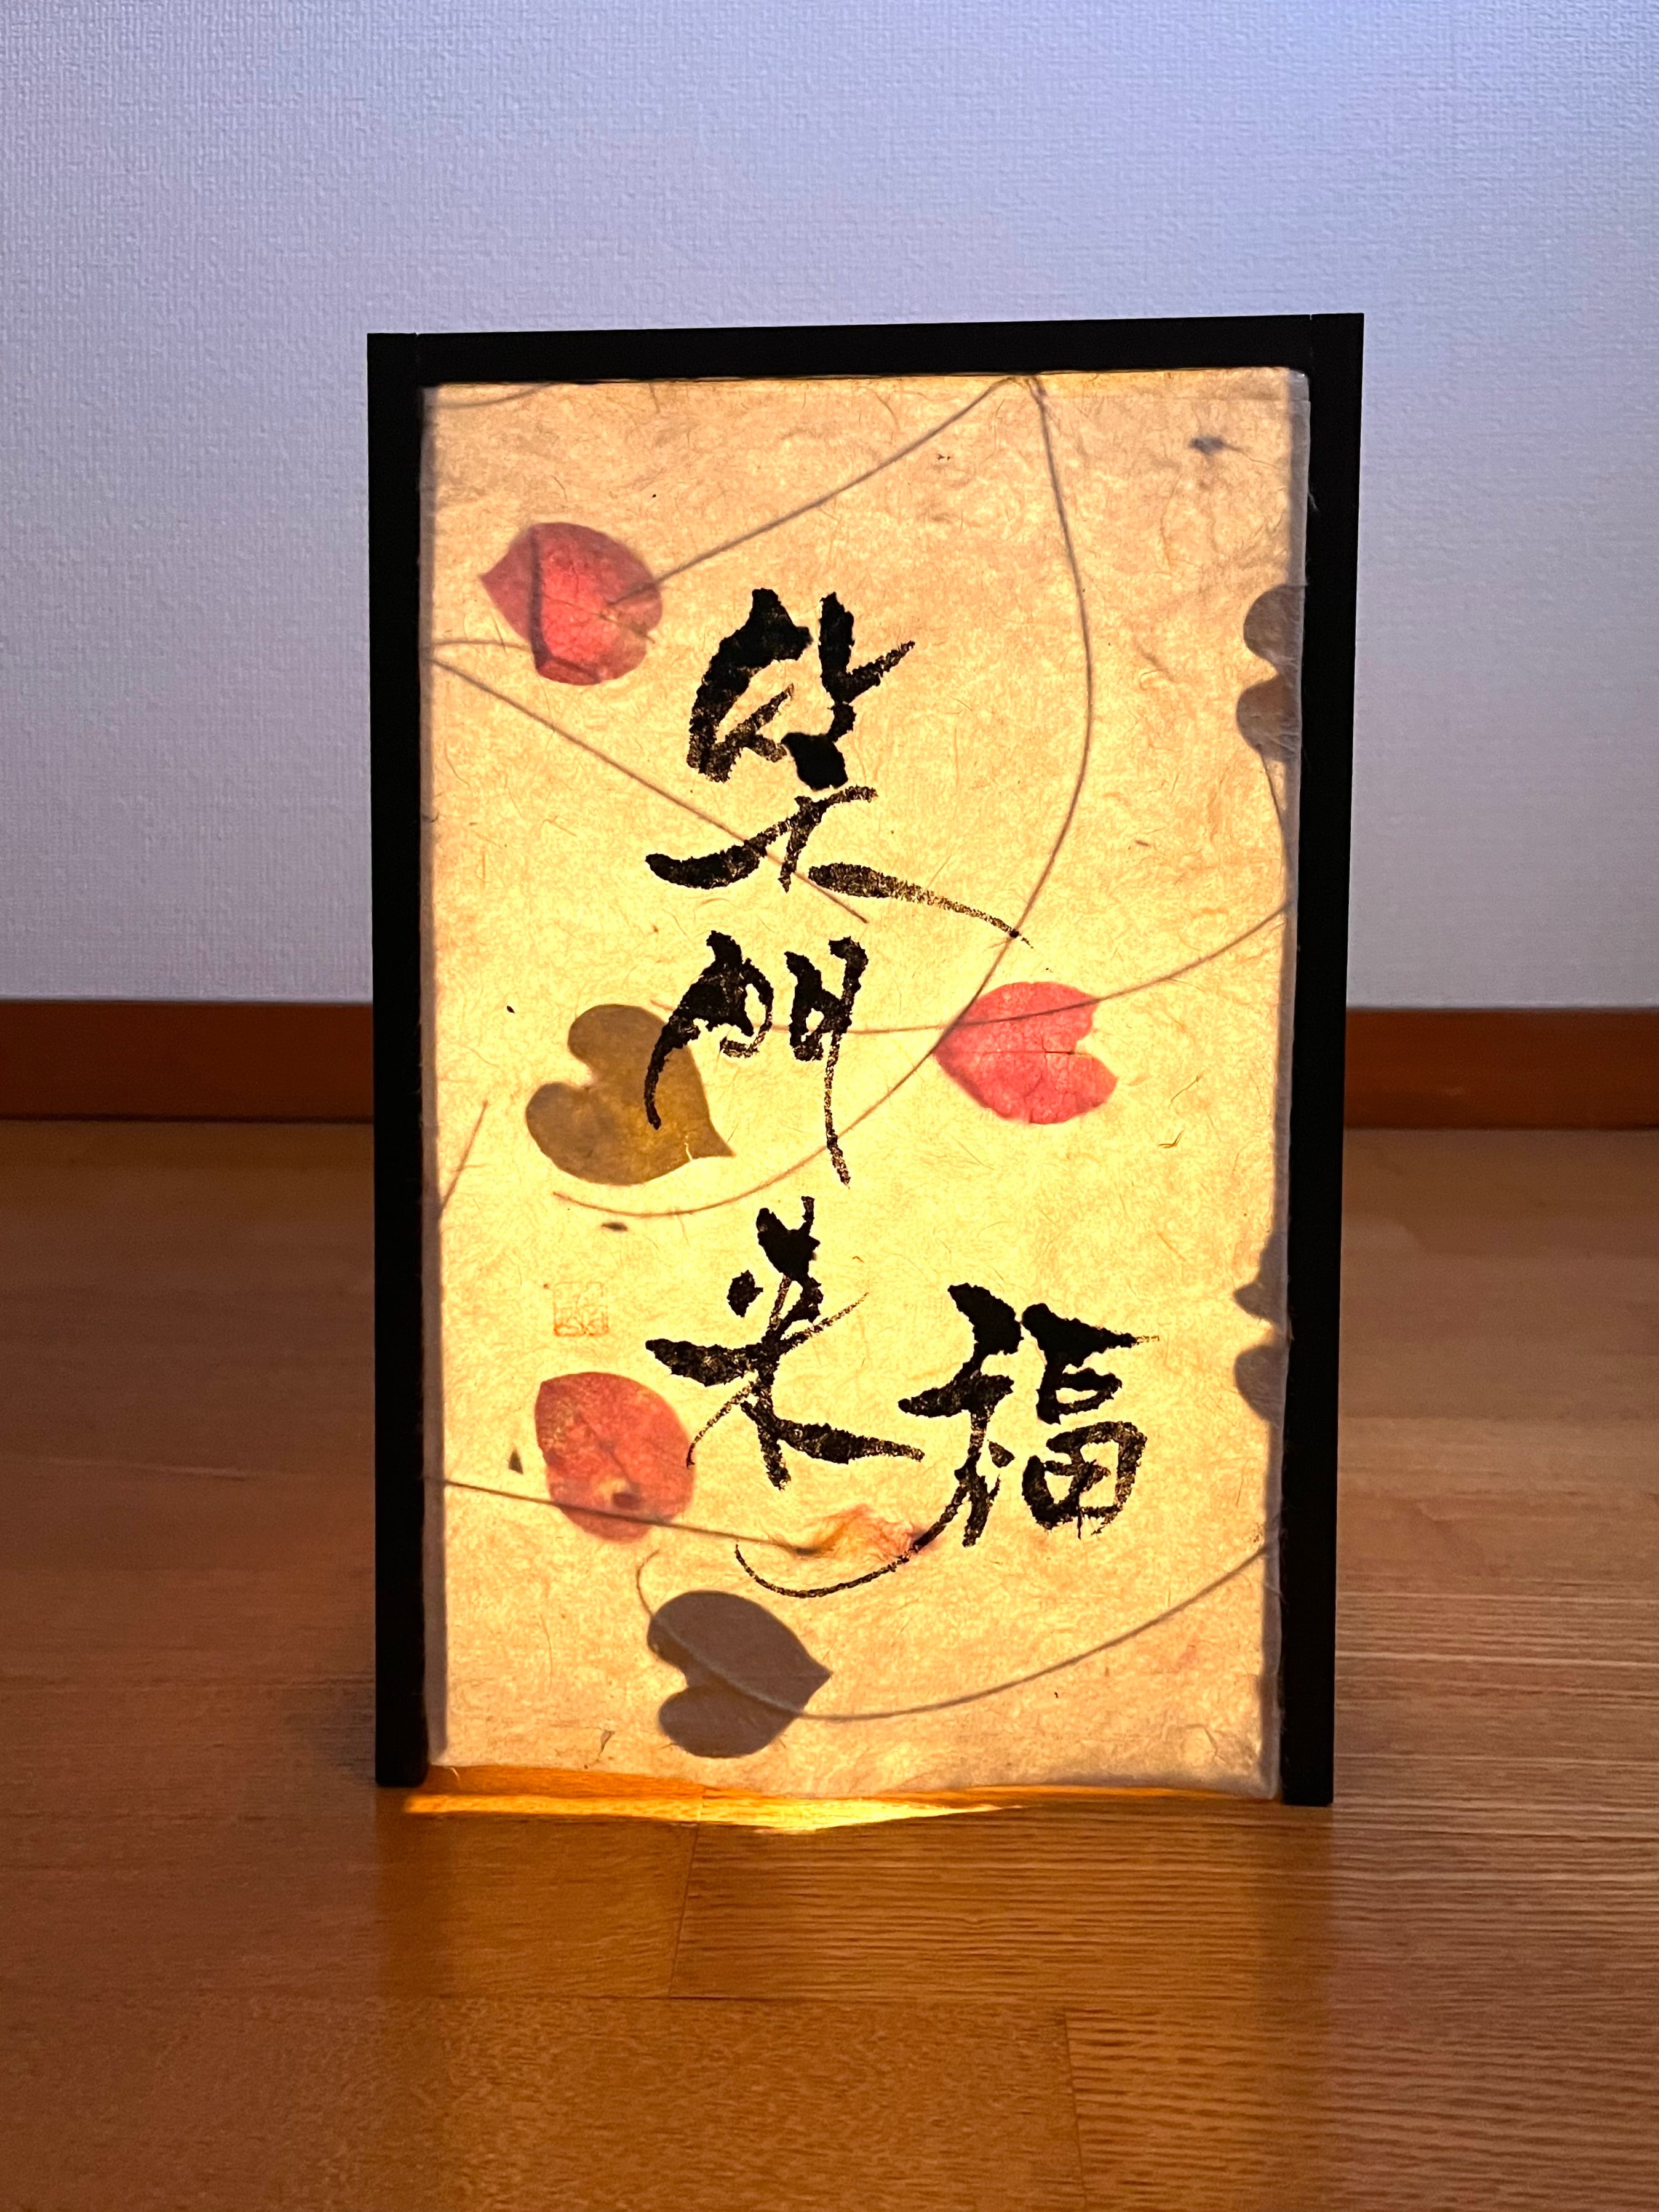 笑門来
福